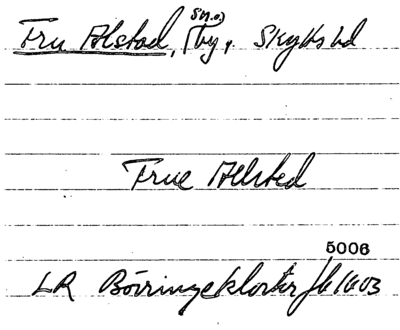 Fru Alstad, sn.o) by, Skytts hd
True Allsted
5006
LR Börringekloster jb 1603